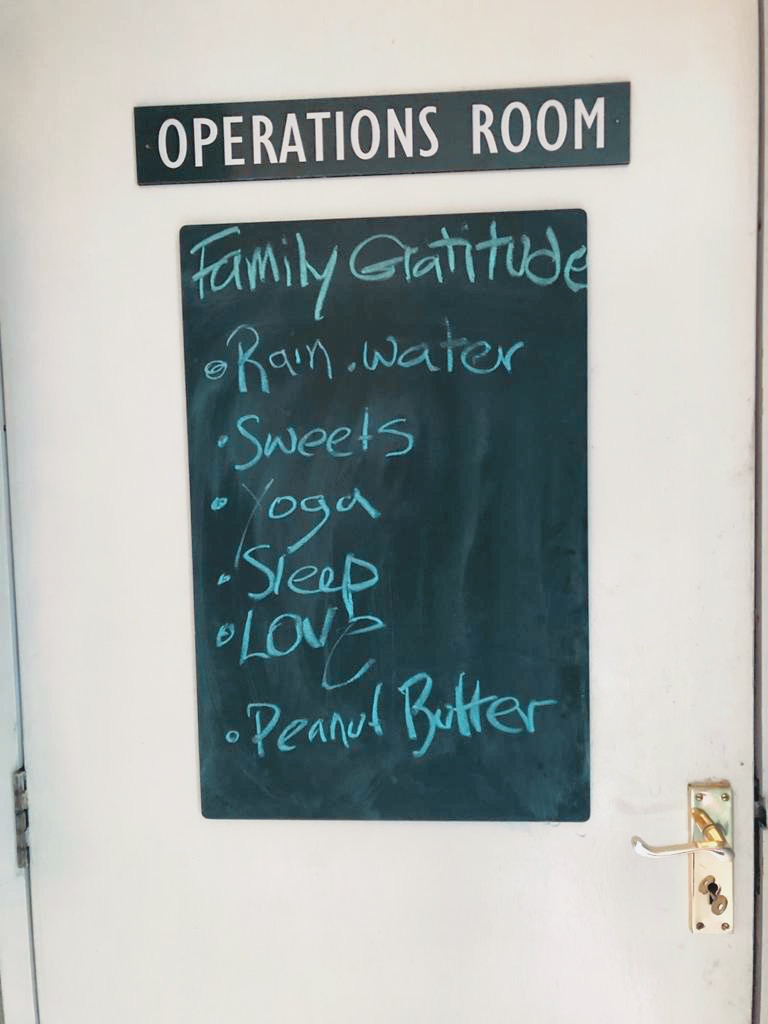 OPERATIONS ROOM
Family Gratitude
• Rain.water
• Sweets
• Yoga
• Sleep
• LOVe
• Peanut Butter